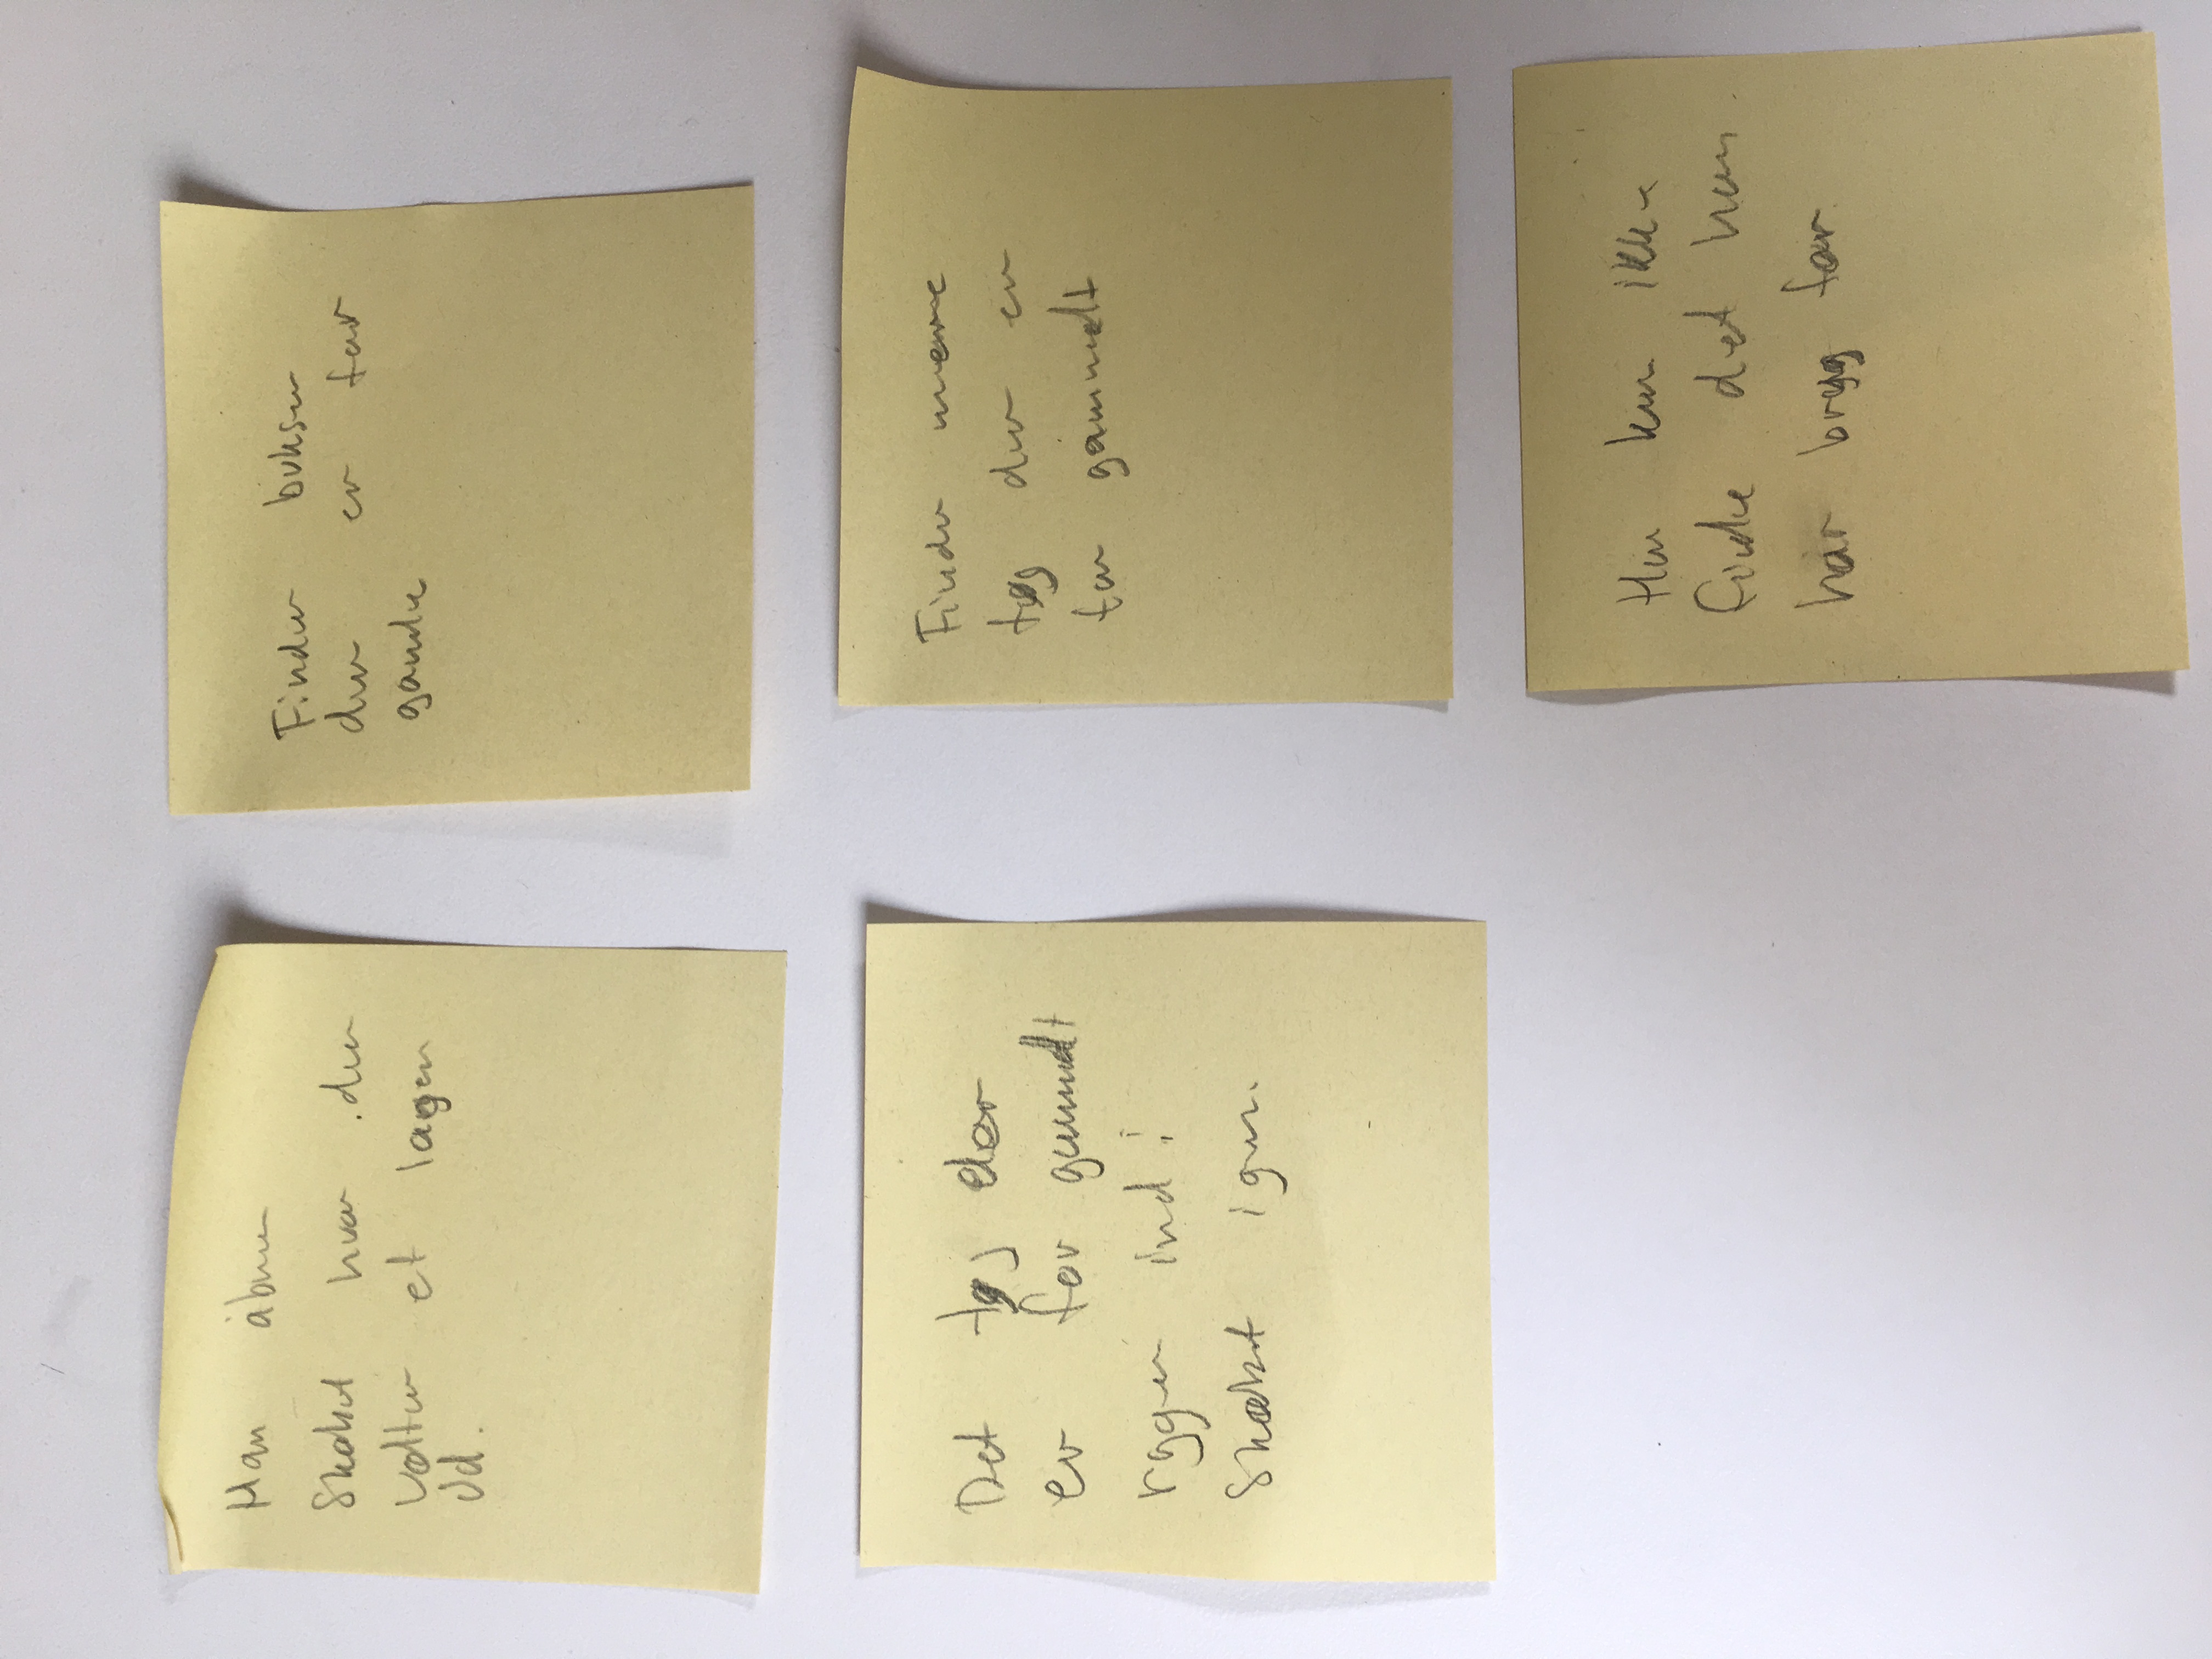 Man åbner
Skabet hvor der
Vælter et lagen
Ud.
Finder bukser
der er for
gamle
Det tøj der
er for gammelt
ryger ind i
Skabet igen.
Finder mere
tøj der er
for gammelt
Han kan ikke
finde det han
har brug for